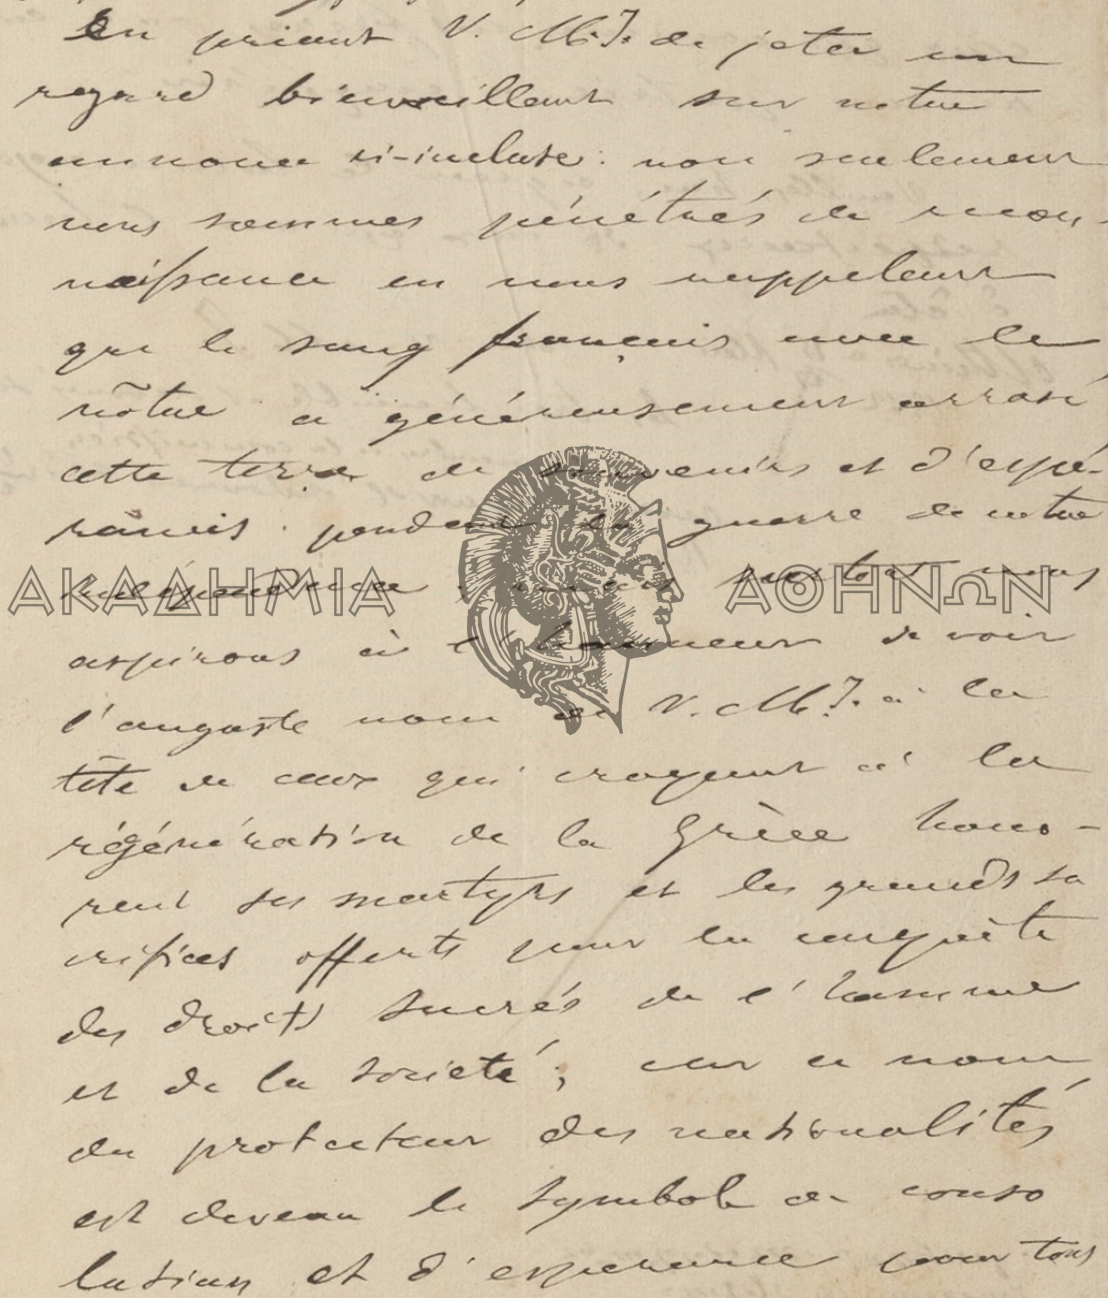 En priant V. M. I. de jeter un
regard bienveillant sur notre
annonce ci-incluse: non seulement
nous sommes pénétrés de recon-
naissance en nous rappelant
que le sang français avec le
nôtre a généreusement arrosé
cette terre de souvenirs et d'espé-
rances pendant la guerre de notre
indépendance surtout nous
ΑΚΑΔΗΜΙΑ ΑΘΗΝΩΝ
aspirons à l'honneur de voir
l'auguste nom de V. M. I. à la
tête de ceux qui croyant à la
régénération de la Grèce hono-
rent ses martyrs et les grands sa
crifices offerts pour la conquête
des droits sacrés de l'homme
et de la société; car ce nom
du protecteur des nationalités
est devenu le symbole de conso
lation et d'esperance pour tous